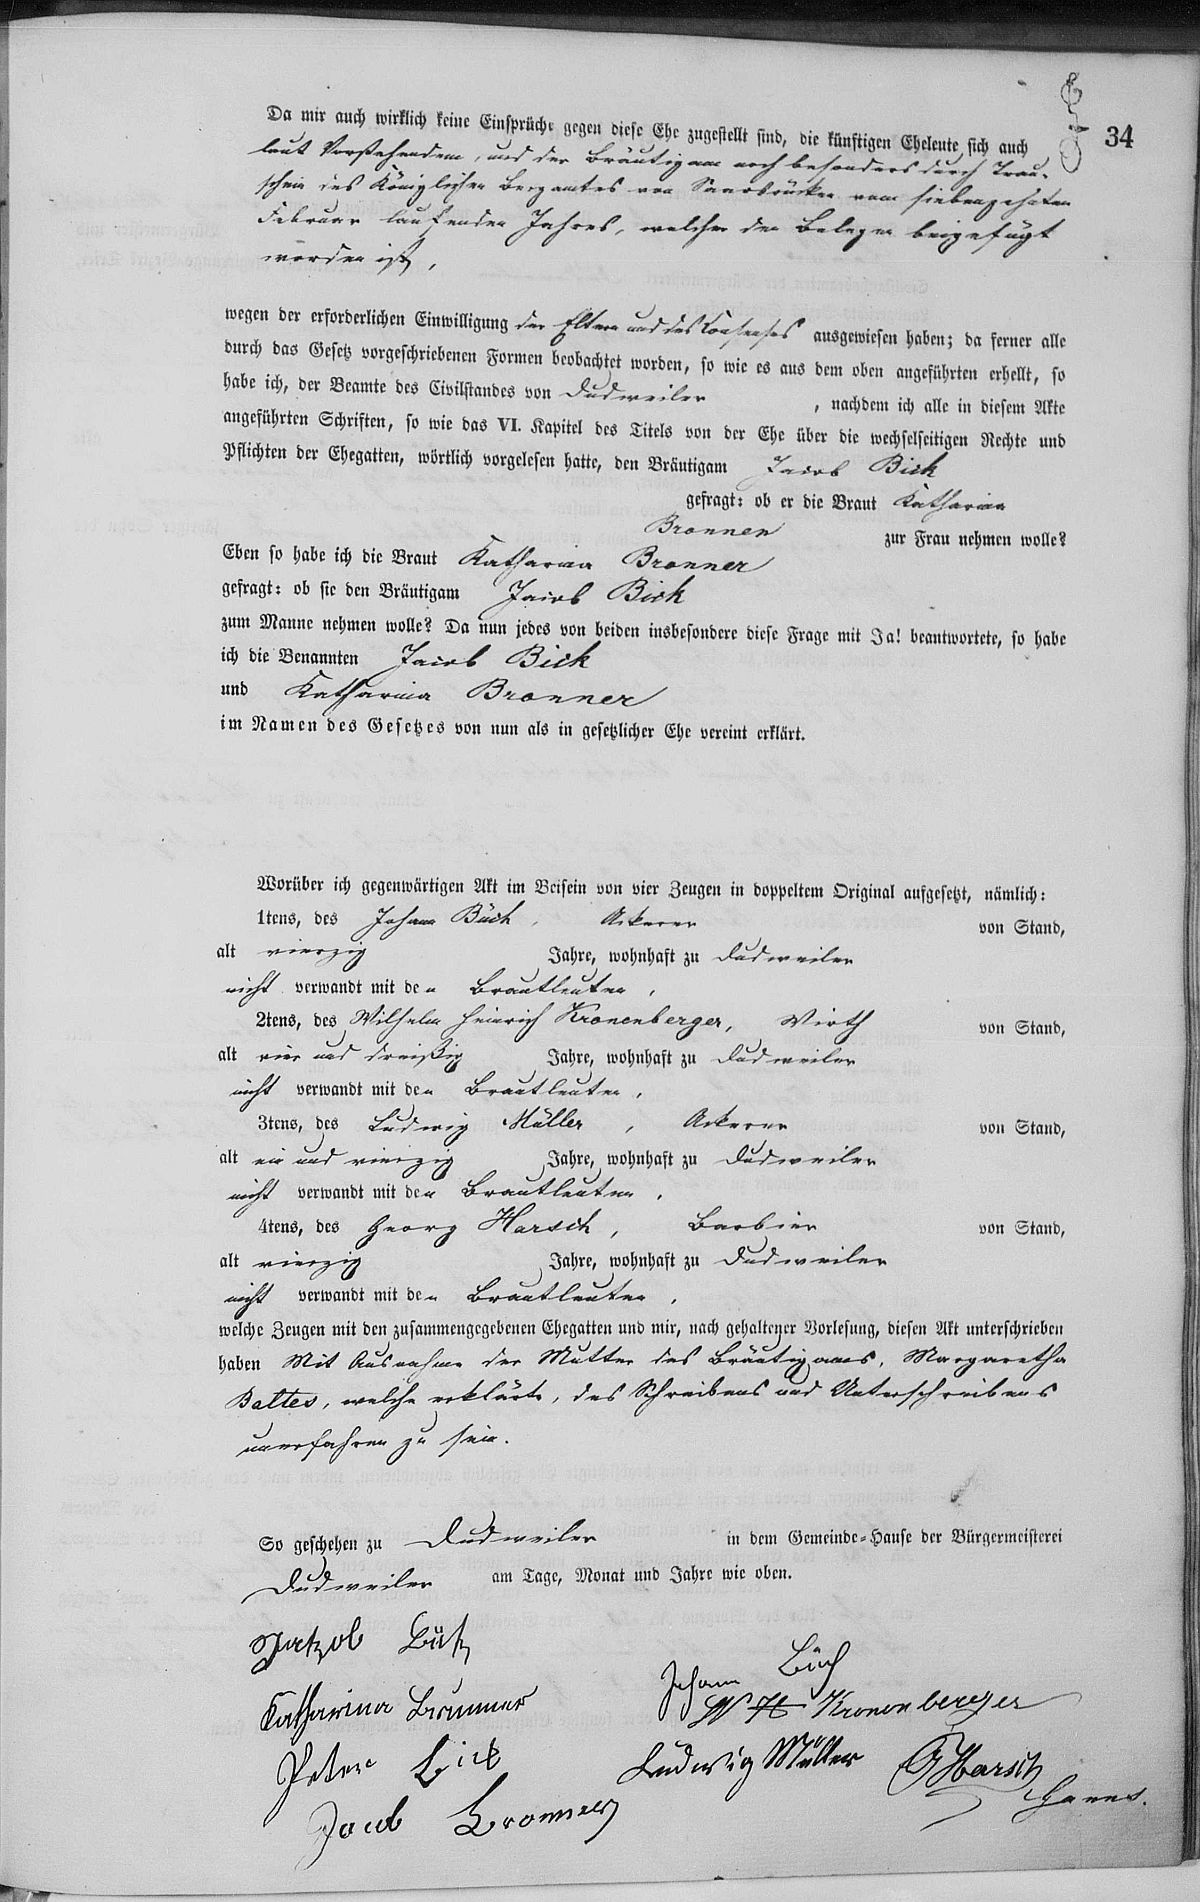 34
Da mir auch wirklich keine Einsprüche gegen diese Ehe zugestellt sind, die künftigen Eheleute sich auch
laut Vorstehendem, und der Bräutigam noch besonders durch Trau-
schein des Königlichen Bergamtes von Saarbrücken vom siebenzehnten
Februar laufenden Jahres, welcher den Belegen beigefügt
worden ist,
wegen der erforderlichen Einwilligung der Eltern und des Consenses ausgewiesen haben; da ferner alle
durch das Gesetz vorgeschriebenen Formen beobachtet worden, so wie es aus dem oben angeführten erhellt, so
habe ich, der Beamte des Civilstandes von Dudweiler , nachdem ich alle in diesem Akte
angeführten Schriften, so wie das VI. Kapitel des Titels von der Ehe über die wechselseitigen Rechte und
Pflichten der Ehegatten, wörtlich vorgelesen hatte, den Bräutigam Jacob Bick
gefragt: ob er die Braut Katharina
Bronner zur Frau nehmen wolle?
Eben so habe ich die Braut Katharina Bronner
gefragt: ob sie den Bräutigam Jacob Bick
zum Manne nehmen wolle? Da nun jedes von beiden insbesondere diese Frage mit Ja! beantwortete, so habe
ich die Benannten Jacob Bick
und Katharina Bronner
im Namen des Gesetzes von nun als in gesetzlicher Ehe vereint erklärt.
Worüber ich gegenwärtigen Akt im Beisein von vier Zeugen in doppeltem Original aufgesetzt, nämlich:
1tens, des Johann Büch, Ackerer von Stand,
alt vierzig Jahre, wohnhaft zu Dudweiler
nicht verwandt mit den Brautleuten,
2tens, des Wilhelm Heinrich Kronenberger, Wirth von Stand,
alt vier und dreißig Jahre, wohnhaft zu Dudweiler
nicht verwandt mit den Brautleuten,
3tens, des Ludwig Müller, Ackerer von Stand,
alt ein und vierzig Jahre, wohnhaft zu Dudweiler
nicht verwandt mit den Brautleuten,
4tens, des Georg Harsch, Barbier von Stand,
alt vierzig Jahre, wohnhaft zu Dudweiler
nicht verwandt mit den Brautleuten,
welche Zeugen mit den zusammengegebenen Ehegatten und mir, nach gehaltener Vorlesung, diesen Akt unterschrieben
haben Mit Ausnahme der Mutter des Bräutigams, Margaretha
Baltes, welche erklärte, des Schreibens und Unterschreibens
unerfahren zu sein.
So geschehen zu Dudweiler in dem Gemeinde-Hause der Bürgermeisterei
Dudweiler am Tage, Monat und Jahre wie oben.
Jakob
Johann Büch
Katharina Brunner
W H Kronenberger
Peter Bick
Ludwig Müller G Harsch
Jacob Bronner